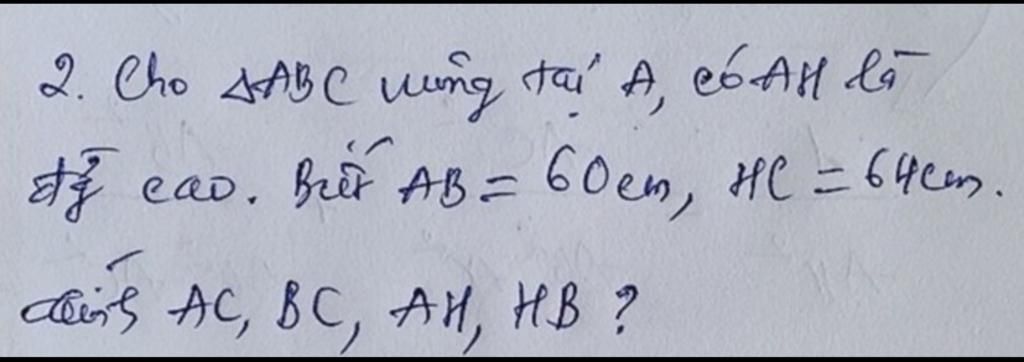 2. Cho ΔABC vuông tại A, có AH là
đg cao. Biết AB = 60cm, HC = 64cm.
tính AC, BC, AH, HB ?